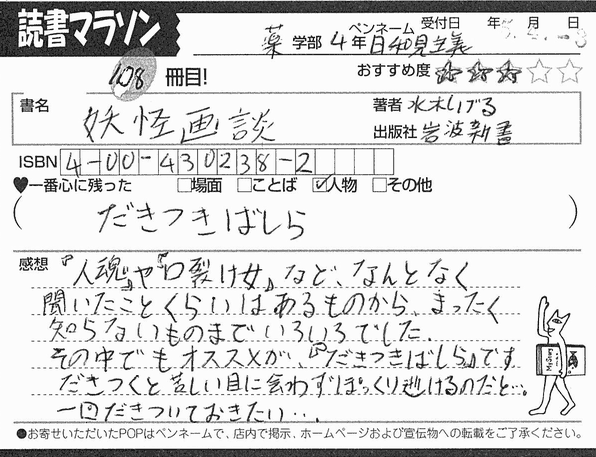 読書マラソン
薬 学部 4年 ペンネーム 日和見主義 受付日 年 月 日
108 冊目!
おすすめ度 ★★★☆☆
書名 妖怪画談
著者 水木しげる
出版社 岩波新書
ISBN 4-00-430238-2
♥一番心に残った □場面 □ことば ☑人物 □その他
(だきつきばしら)
感想 『人魂』や『口裂け女』など、なんとなく
聞いたことくらいはあるものから、まったく
知らないものまでいろいろでした。
その中でもオススメが、『だきつきばしら』です
だきつくと苦しい目に会わずぽっくり逝けるのだと…。
一回だきついておきたい…。
●お寄せいただいたPOPはペンネームで、店内で掲示、ホームページおよび宣伝物への転載をご了承ください。